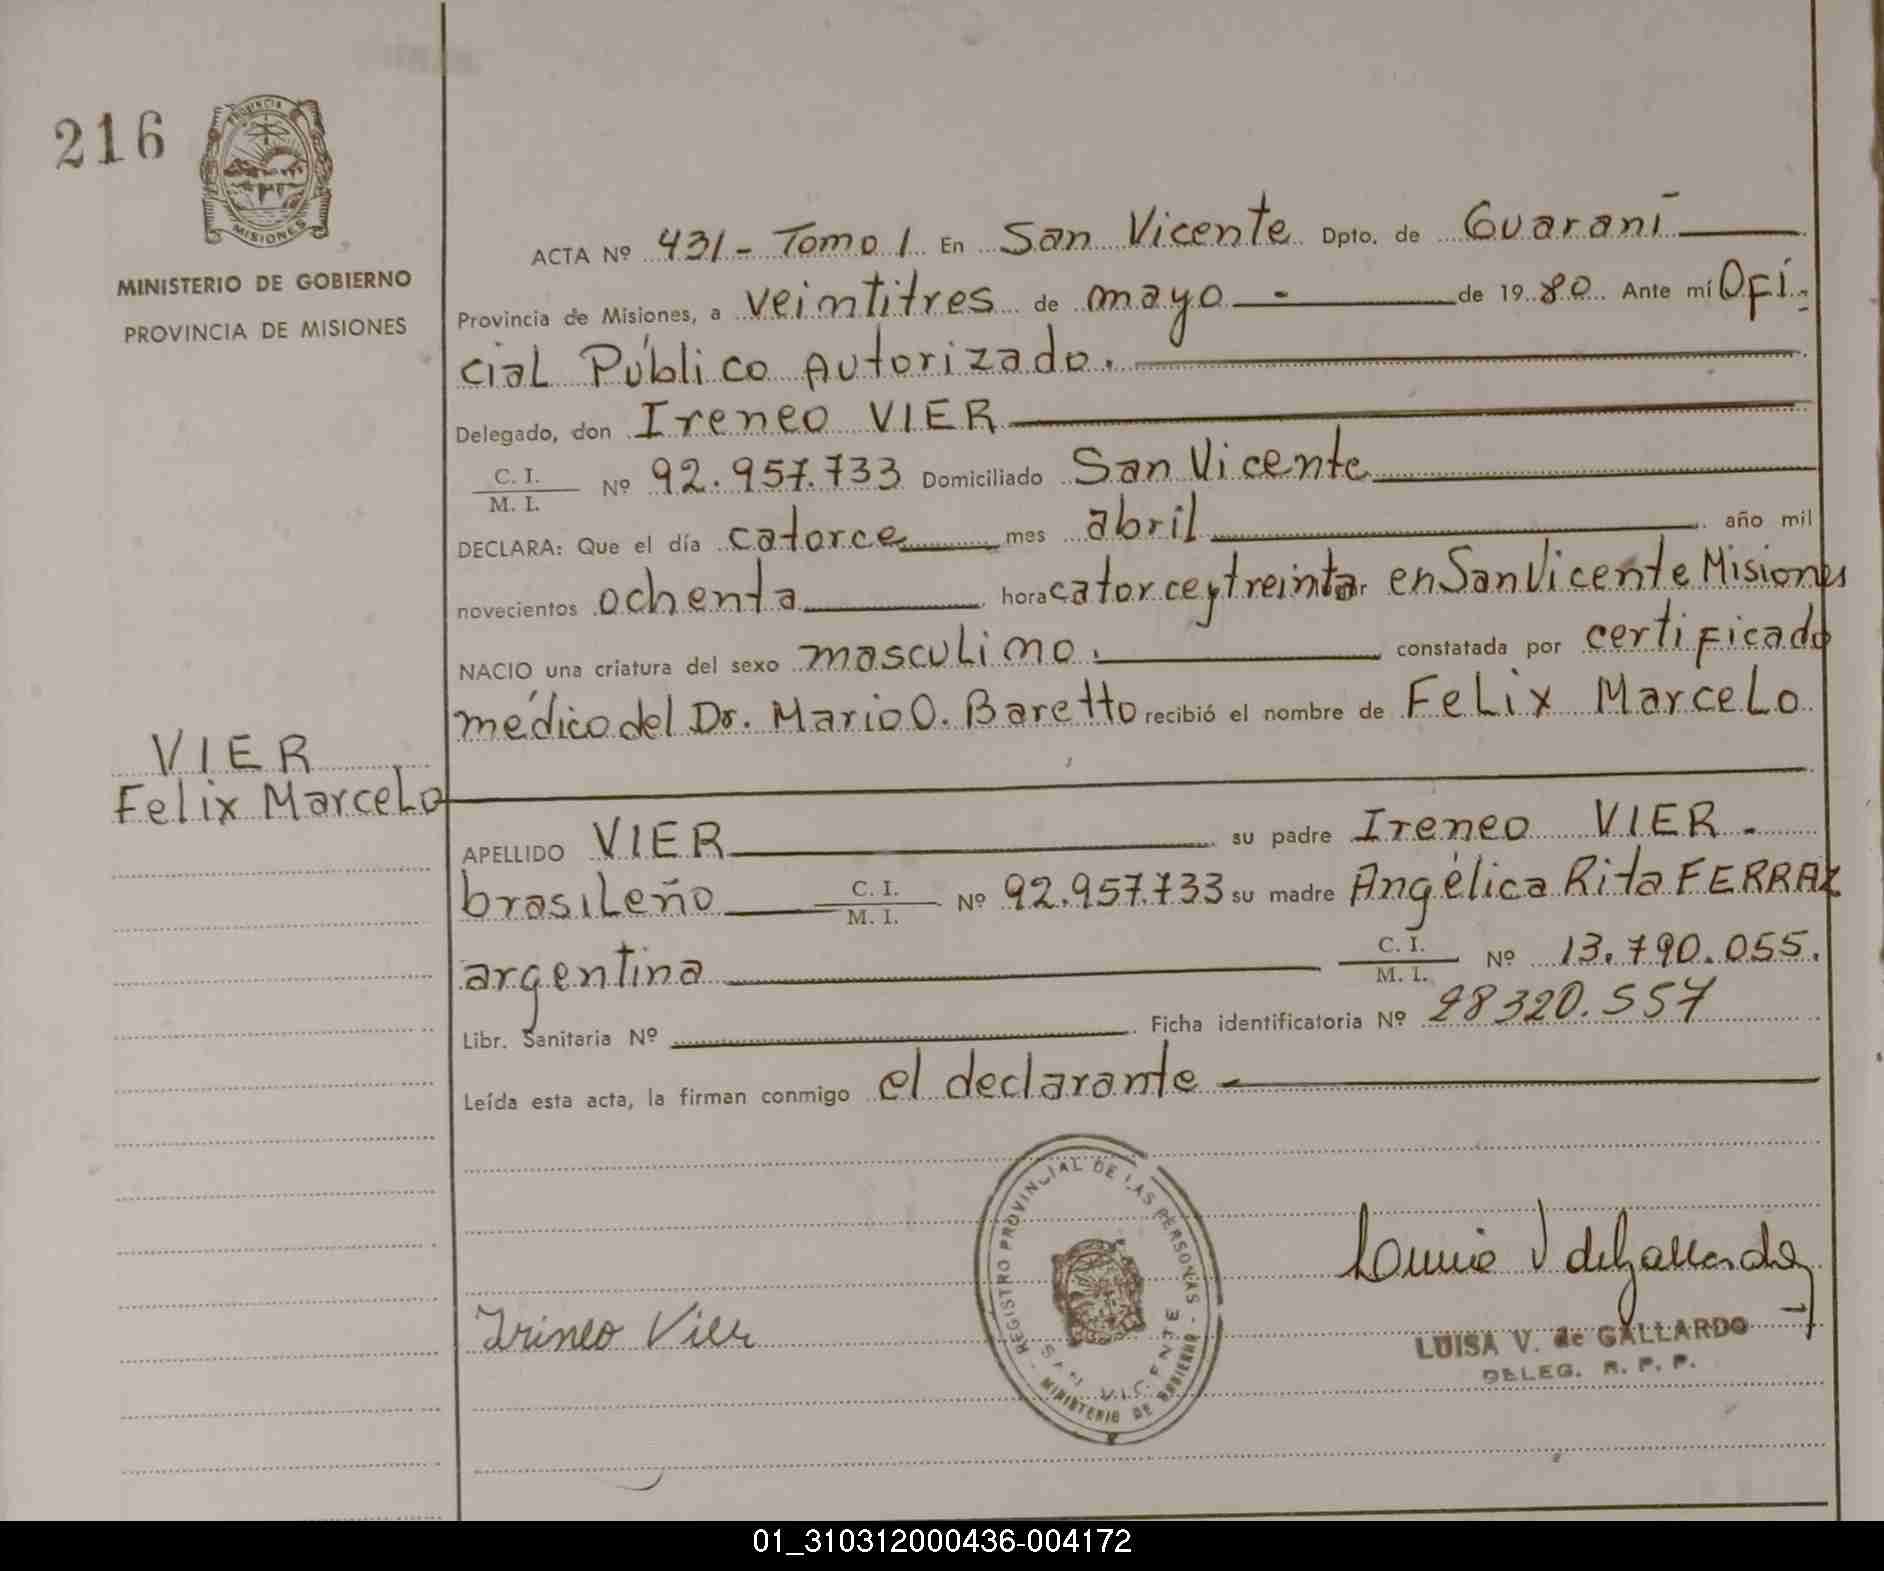 216
PROVINCIA
MISIONES
MINISTERIO DE GOBIERNO
PROVINCIA DE MISIONES
ACTA Nº 431 - Tomo I En San Vicente Dpto. de Guaraní
Provincia de Misiones, a veintitres de mayo - de 1980. Ante mí Ofi-
cial Público Autorizado.
Delegado, don Ireneo VIER
C. I.
M. I. Nº 92.957.733 Domiciliado San Vicente
DECLARA: Que el día catorce mes abril año mil
novecientos ochenta hora catorce y treinta en San Vicente Misiones
NACIO una criatura del sexo masculino. constatada por certificado
médico del Dr. Mario O. Baretto recibió el nombre de Felix Marcelo
VIER
Felix Marcelo
APELLIDO VIER su padre Ireneo VIER -
brasileño C. I.
M. I. Nº 92.957.733 su madre Angélica Rita FERRAZ
argentina C. I.
M. I. Nº 13.790.055.
Libr. Sanitaria Nº Ficha identificatoria Nº 28320.557
Leída esta acta, la firman conmigo el declarante
REGISTRO PROVINCIAL DE LAS PERSONAS
VICENTE
MINISTERIO DE GOBIERNO
Irineo Vier
Luisa V de Gallardo
LUISA V. de GALLARDO
DELEG. R. P. P.
01_310312000436-004172